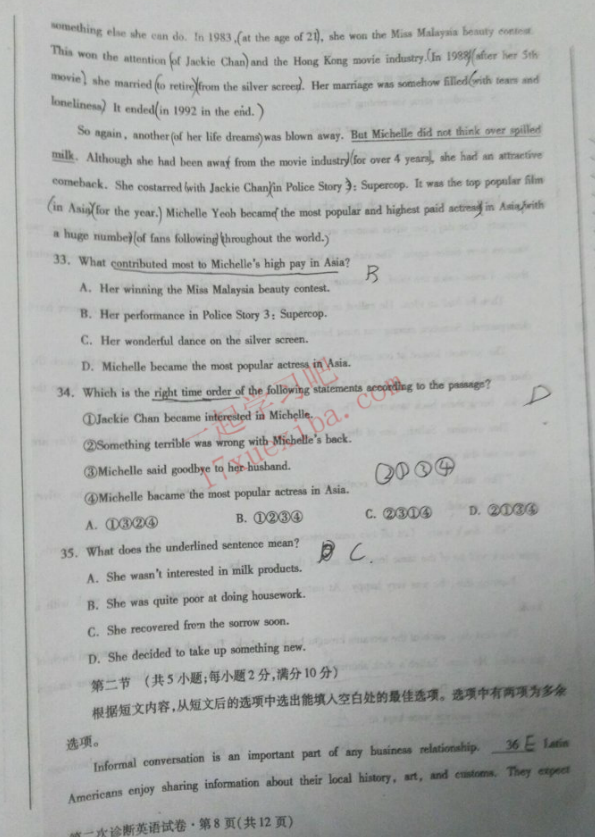 something else she can do. In 1983, (at the age of 21), she won the Miss Malaysia beauty contest.
This won the attention (of Jackie Chan) and the Hong Kong movie industry. (In 1988) (after her 5th
movie) she married (to retire) (from the silver screen). Her marriage was somehow filled (with tears and
loneliness) It ended (in 1992 in the end.)
So again, another (of her life dreams) was blown away. But Michelle did not think over spilled
milk. Although she had been away from the movie industry (for over 4 years), she had an attractive
comeback. She costarred (with Jackie Chan) (in Police Story 3: Supercop. It was the top popular film
(in Asia) (for the year.) Michelle Yeoh became the most popular and highest paid actress in Asia, (with
a huge number) (of fans following) (throughout the world.)
33. What contributed most to Michelle's high pay in Asia?
B
A. Her winning the Miss Malaysia beauty contest.
B. Her performance in Police Story 3: Supercop.
C. Her wonderful dance on the silver screen.
D. Michelle became the most popular actress in Asia.
34. Which is the right time order of the following statements according to the passage?
D
①Jackie Chan became interested in Michelle.
②Something terrible was wrong with Michelle's back.
③Michelle said goodbye to her husband.
②①③④
④Michelle bacame the most popular actress in Asia.
A. ①③②④ B. ①②③④ C. ②③①④ D. ②①③④
35. What does the underlined sentence mean?
C.
A. She wasn't interested in milk products.
B. She was quite poor at doing housework.
C. She recovered from the sorrow soon.
D. She decided to take up something new.
第二节 (共5小题;每小题2分,满分10分)
根据短文内容,从短文后的选项中选出能填入空白处的最佳选项。选项中有两项为多余
选项。
Informal conversation is an important part of any business relationship. 36 E Latin
Americans enjoy sharing information about their local history, art, and customs. They expect
第二次诊断英语试卷·第8页(共12页)
一起学习吧
17xuexiba.com